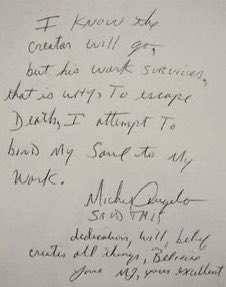 I Know the
creator will go,
but his work survives,
that is why To escape
Death, I attempt To
bind My Soul to My
Work.
Michelangelo
SAID THIS
dedication, will, belief
creates all things, Believe
your excellent